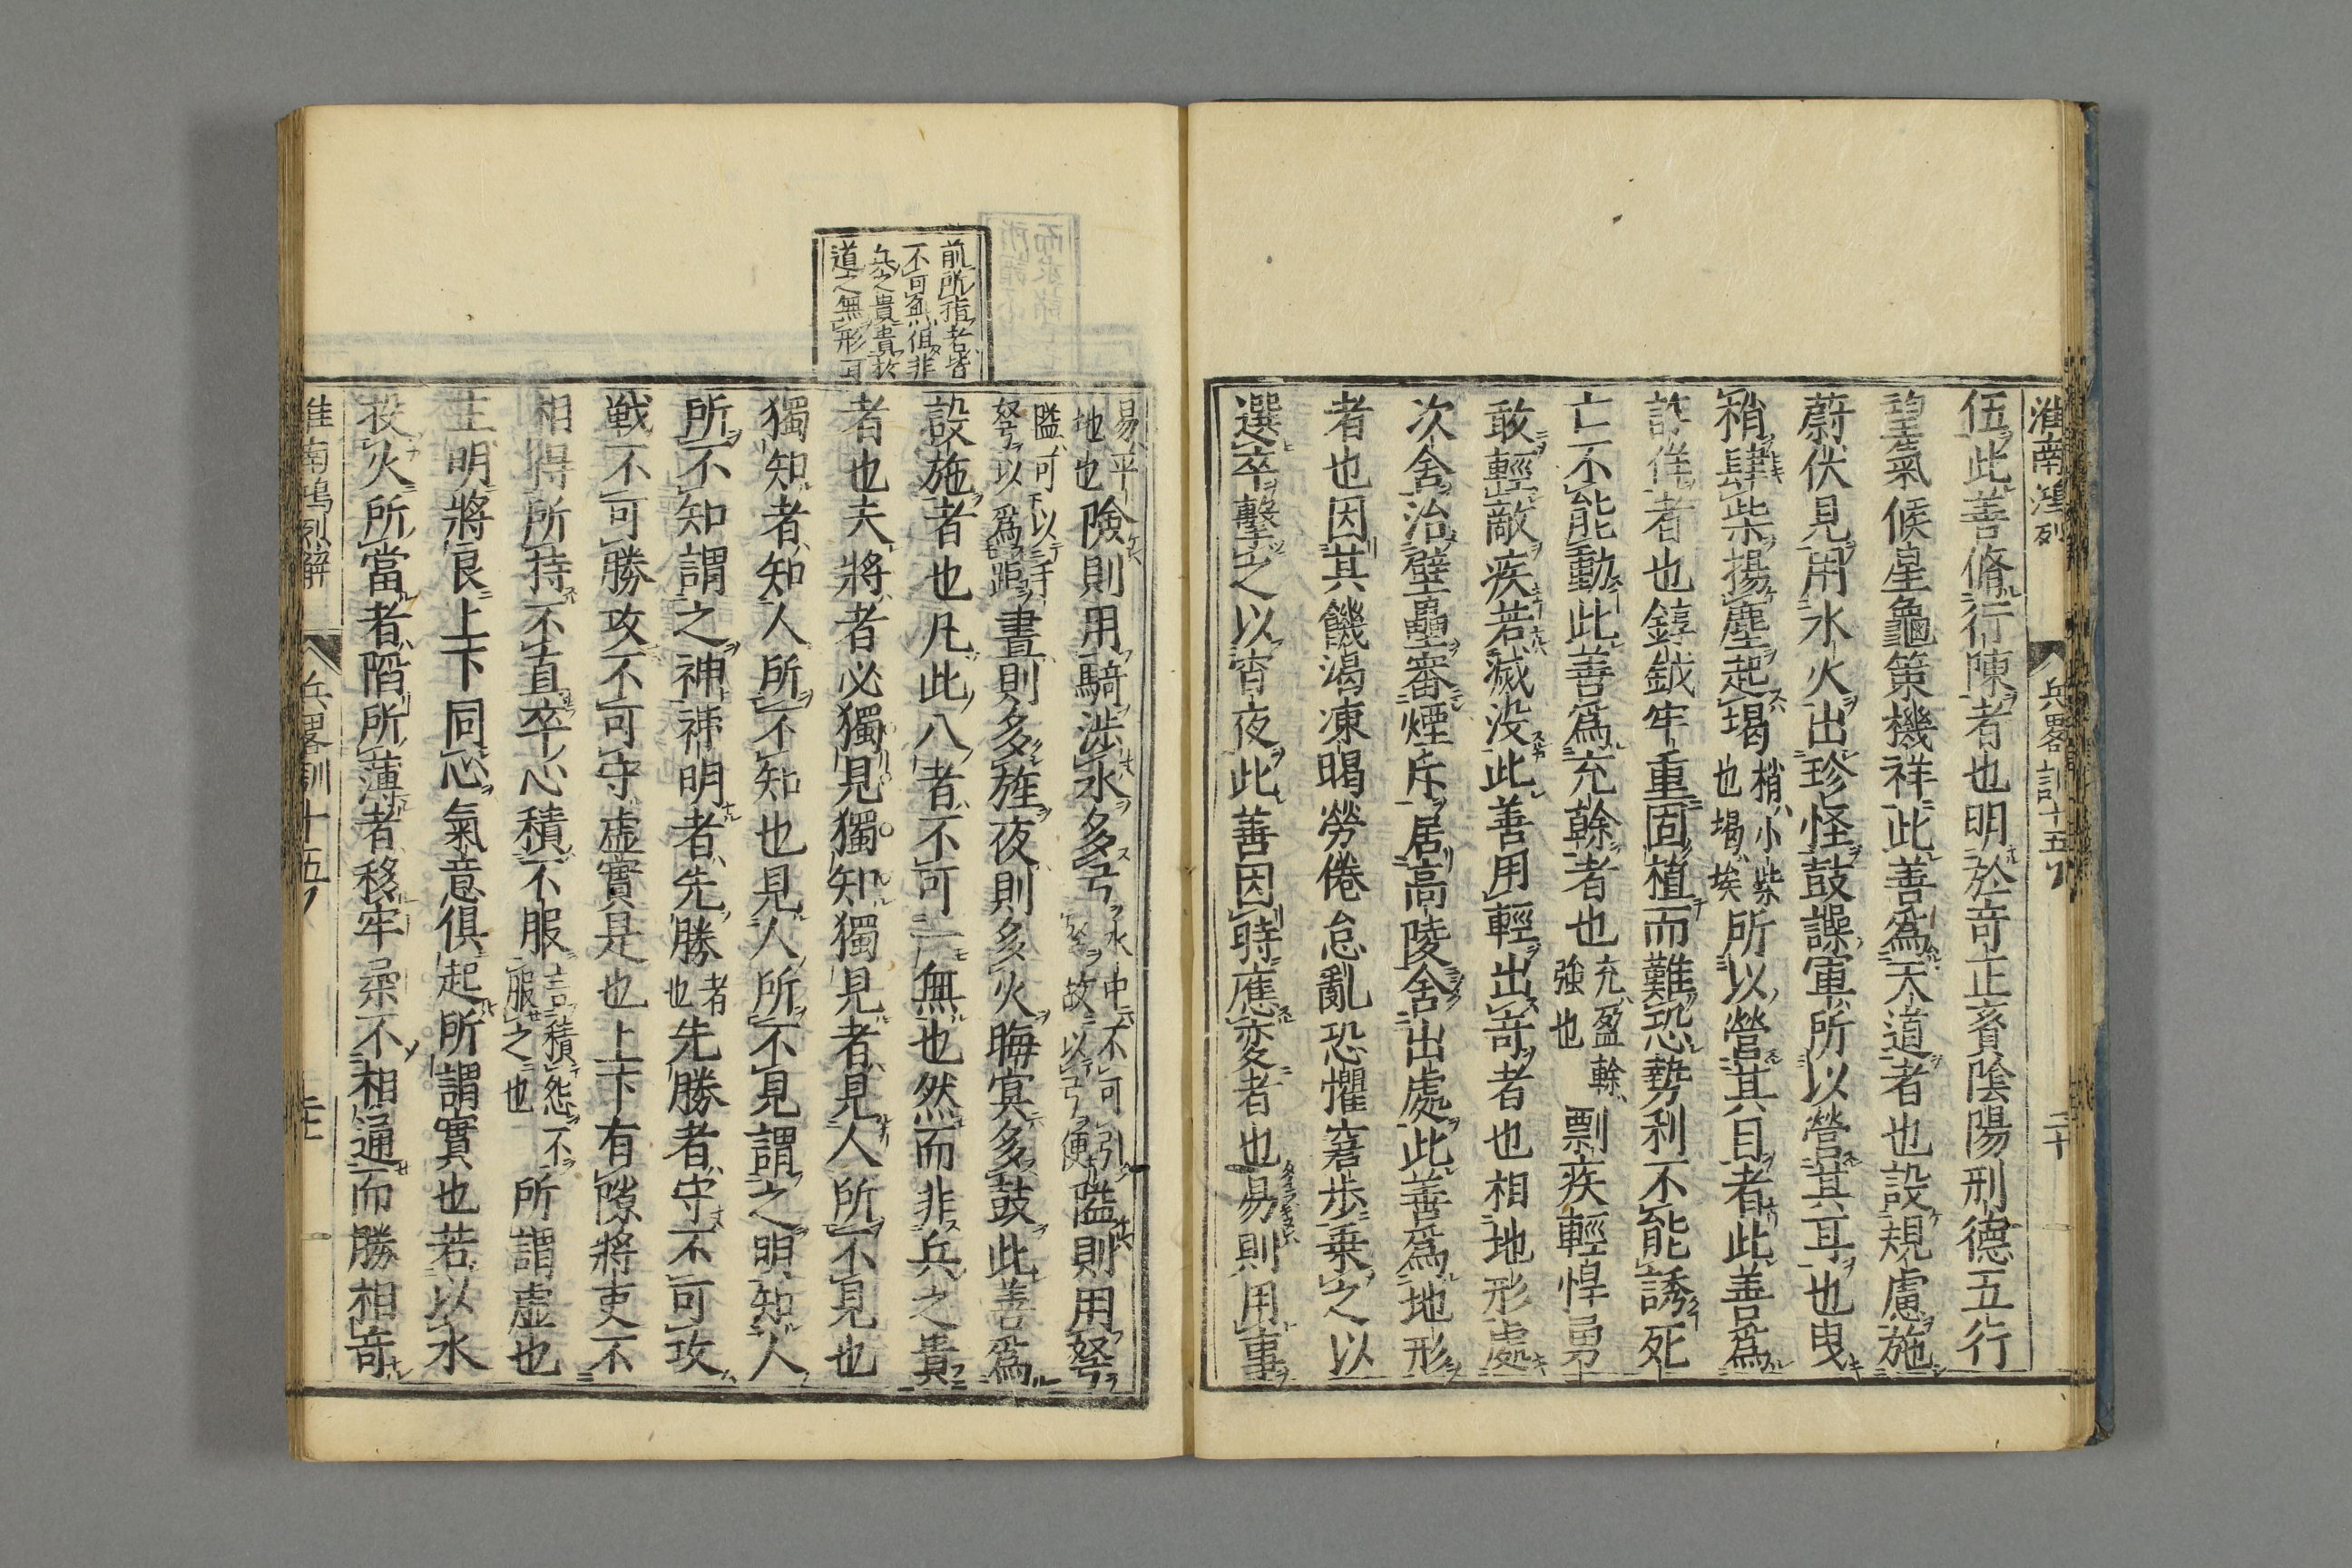 淮南鴻列 兵畧訓十五 二十
伍此善脩行陳者也明於竒正賌陰陽刑德五行
望氣候星龜策機祥此善爲天道者也設規慮施
蔚伏見用水火出珍怪鼓譟軍所以營其耳也曳
梢肆柴揚塵起堨梢小柴也堨埃所以營其目者此善爲
詐佯者也錞鉞牢重固植而難恐勢利不能誘死
亡不能動此善爲充榦者也充盈榦強也剽疾輕悍勇
敢輕敵疾若滅没此善用輕出竒者也相地形處
次舍治壁壘審煙斥居高陵舍出處此善爲地形
者也因其饑渴凍暍勞倦怠亂恐懼窘歩乗之以
選卒擊之以宵夜此善因時應変者也易則用車
易平地也険則用騎渉水多弓水中不可引弩故以弓便隘則用弩
隘可以手弩以爲距晝則多旌夜則多火晦冥多鼓此善爲
設施者也凡此八者不可一無也然而非兵之貴
者也夫將者必獨見獨知獨見者見人所不見也
獨知者知人所不知也見人所不見謂之明知人
所不知謂之神神明者先勝者也先勝者守不可攻
戦不可勝攻不可守虚實是也上下有隙將吏不
相得所持不直卒心積不服言積怨不服之也所謂虚也
主明將良上下同心氣意俱起所謂實也若以水
投火所當者陷所薄者移牢柔不相通而勝相竒
淮南鴻烈解 兵畧訓十五
前所指者皆
不可無但非
兵之貴貴於
道之無形耳